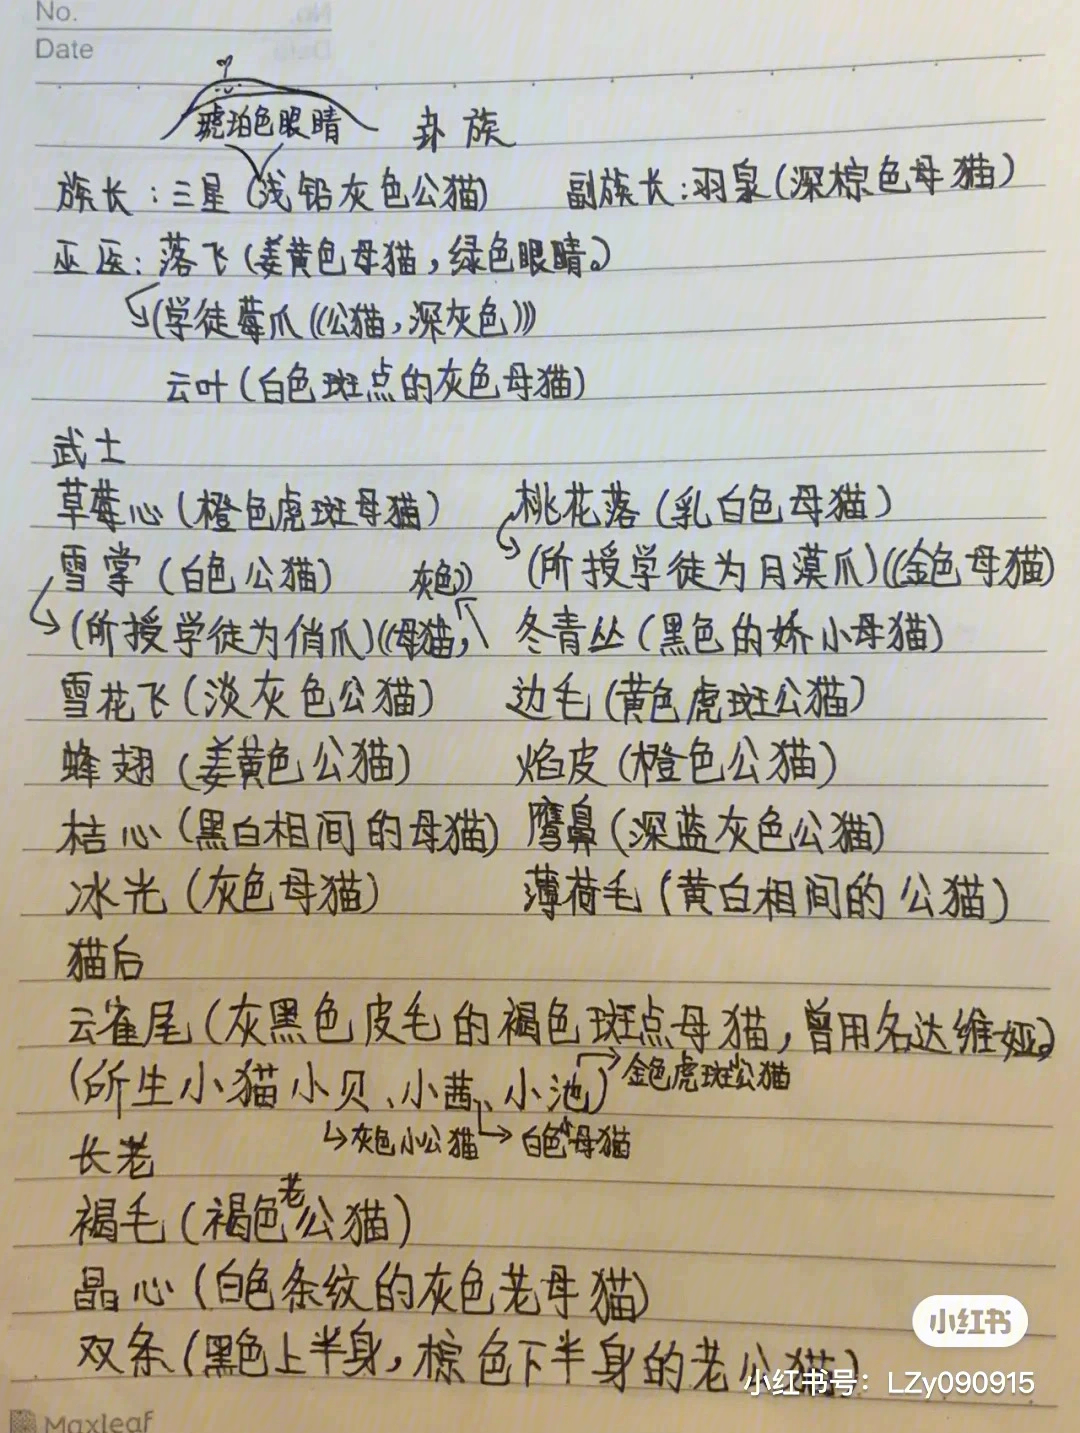 No.
Date
琥珀色眼睛 卦族
族长：三星（浅铅灰色公猫） 副族长：羽泉（深棕色母猫）
巫医：落飞（姜黄色母猫，绿色眼睛。）
（学徒莓爪（（公猫，深灰色）））
云叶（白色斑点的灰色母猫）
武士
草莓心（橙色虎斑母猫） 桃花落（乳白色母猫）
雪掌（白色公猫） 灰色）） （所授学徒为月漠爪）（（金色母猫）
（所授学徒为俏爪）（（母猫， 冬青丛（黑色的娇小母猫）
雪花飞（淡灰色公猫） 边毛（黄色虎斑公猫）
蜂翅（姜黄色公猫） 焰皮（橙色公猫）
桔心（黑白相间的母猫） 鹰鼻（深蓝灰色公猫）
冰光（灰色母猫） 薄荷毛（黄白相间的公猫）
猫后
云雀尾（灰黑色皮毛的褐色斑点母猫，曾用名达维娅。）
（所生小猫小贝、小茜、小池） 金色虎斑小公猫
灰色小公猫 白色小母猫
长老
褐毛（褐色老公猫）
晶心（白色条纹的灰色老母猫）
双条（黑色上半身，棕色下半身的老公猫）
小红书
小红书号：LZy090915
Maxleaf